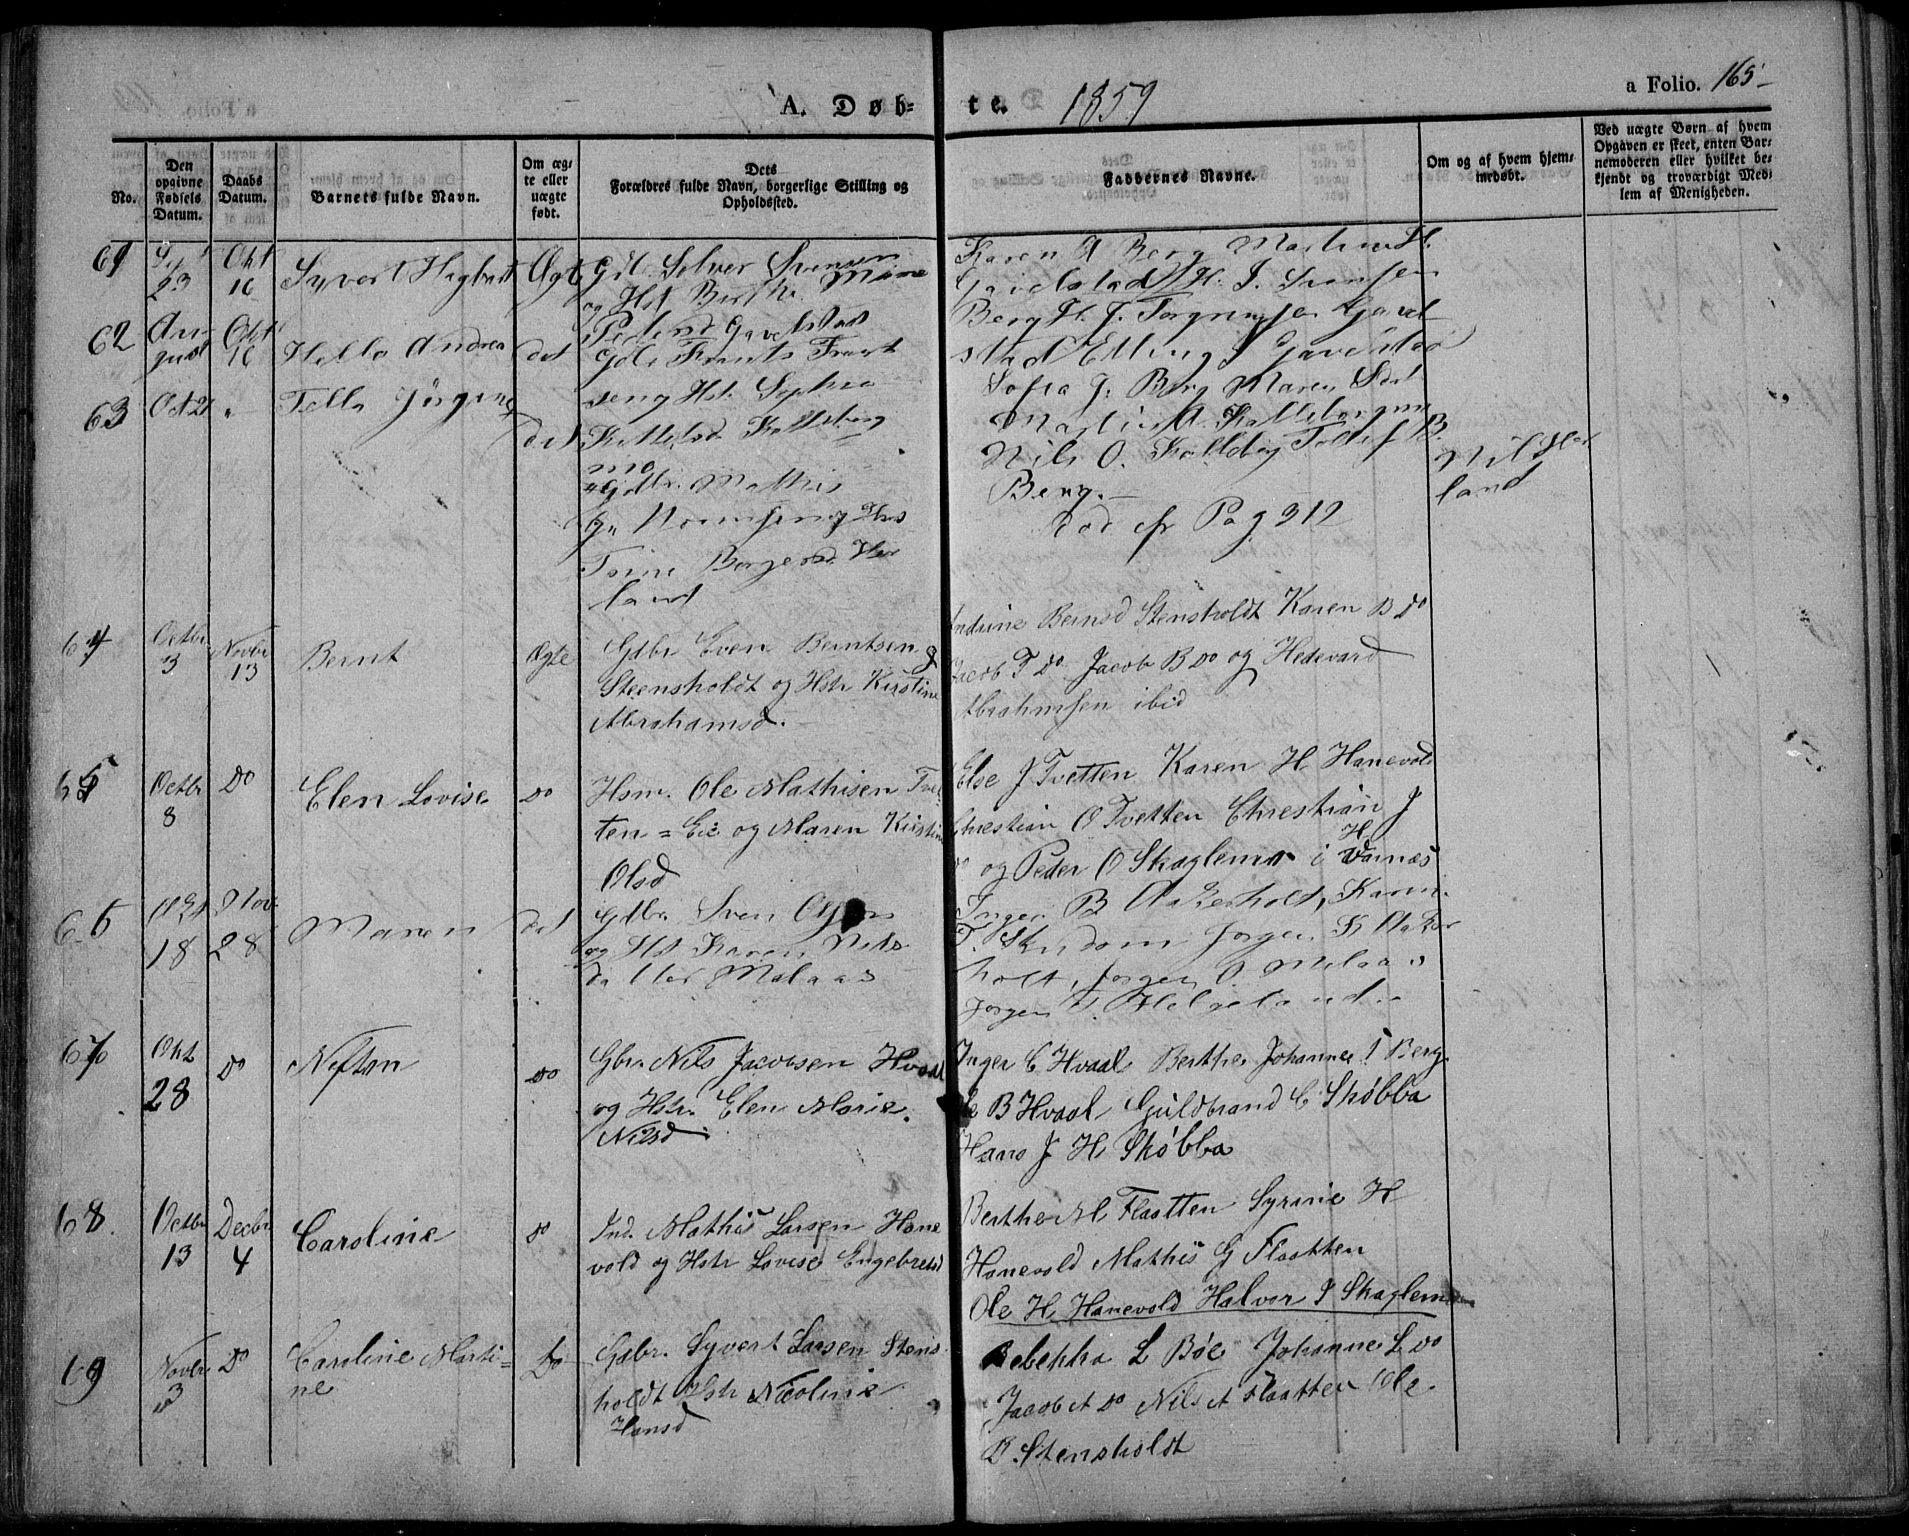 A. Døb-te. 1859
a Folio. 165
No.
Den opgivne Fødsels Datum.
Daabs Datum.
Barnets fulde Navn.
Om ægte eller uægte født.
Dets Forældres fulde Navn, borgerlige Stilling og Opholdssted.
Faddernes Navne.
Om og af hvem hjemmedøbt.
Ved uægte Børn af hvem Opgaven er skeet, enten Barnemoderen eller hvilket bekjendt og troværdigt Medlem af Menigheden.
61
23
Okt 16
Syvert Hagbart
Ægt
Selver Svensen
og Hst Berthe Marie
Pedersd Gavelstad
Karen A Berg
Gavelstad H. J. Svensen
Berg H. J. Gavel
stad Elling S Gavelstad
62
August
Okt 16
Helle Andrea
det
Frants Frant
seng Hst. Sophie
Kittilsd Kolleberg
Sofia J. Berg Maren
Nils O. Kolleberg B.
Berg.
63
Oct 2
"
Telle Jørgine
det
Mathis
Trine Borgersd Her
land
død cfr Pag 312
land
64
Octbr 3
Novbr 13
Bernt
Ægte
Gdbr Even Berntsen
Steensholdt og Hstr Kirstine
Abrahamsd.
Andrine Bernsd Stensholdt Karen B do
Jacob T do Jacob B do og Hedevard
Abrahmsen ibid
65
Octbr 8
do
Elen Lovise
do
Hsm. Ole Mathisen Tvet
ten = Eie og Maren Kirstine
Olsd
Else J Tvetten Karen H Hanevold
Chrestian O Tvetten Chrestian J
do og Peder O Skaglemo i H Varnæs
66
Okt 18
Nov. 28
Maren
det
Gdbr. Sven Olsen
og Hst Karen Nils
datter Melaas
Inger B Aakerholt, Karen
T. Skndom Jørgen K Aaker
holt, Jørgen O. Melaas
Jørgen T. Helgeland.
67
Okt 28
do
Nefton
do
Gbr. Nils Jacobsen Hvaal
og Hstr. Elen Marie
Nilsd
Inger C Hvaal Berthe Johanne I Berg
Ole B Hvaal Guldbrand C Skøbba
Hans J H Skøbba
68
Octbr 13
Decbr 4
Caroline
do
Ind. Mathis Larsen Hane
vold og Hstr Lovise Engebretsd
Berthe M Flaatten Syrine H
Hanevold Mathis G Flaatten
Ole H Hanevold Halvor I Skaglem
69
Novbr 3
Do
Caroline Marti=
ne
Do
Gdbr. Syvert Larsen Stens
holdt Hstr Nicoline
Hansd
Rebekka L Bøe Johanne L do
Jacob A do Nils A Flaatten Ole
B Stensholdt